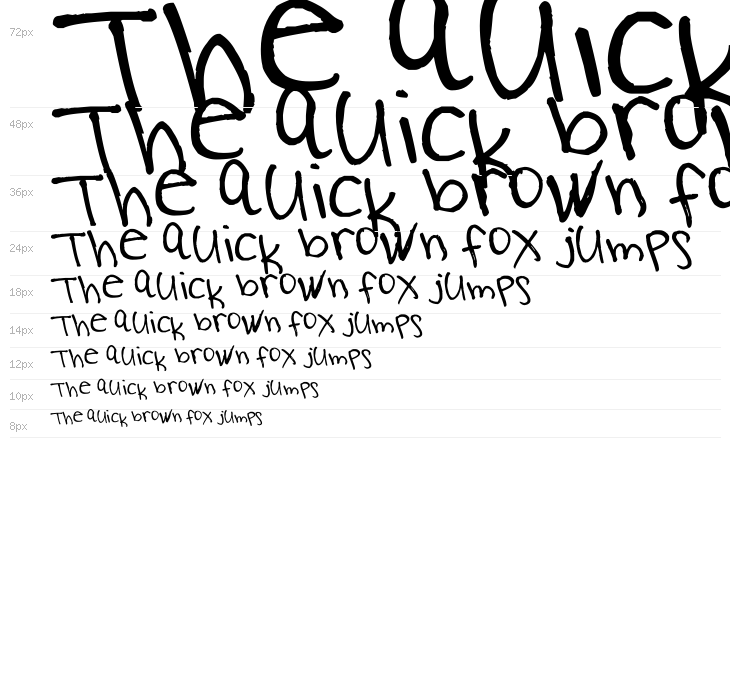 72px The quick
48px The quick bro
36px The quick brown fo
24px The quick brown fox jumps
18px The quick brown fox jumps
14px The quick brown fox jumps
12px The quick brown fox jumps
10px The quick brown fox jumps
8px The quick brown fox jumps